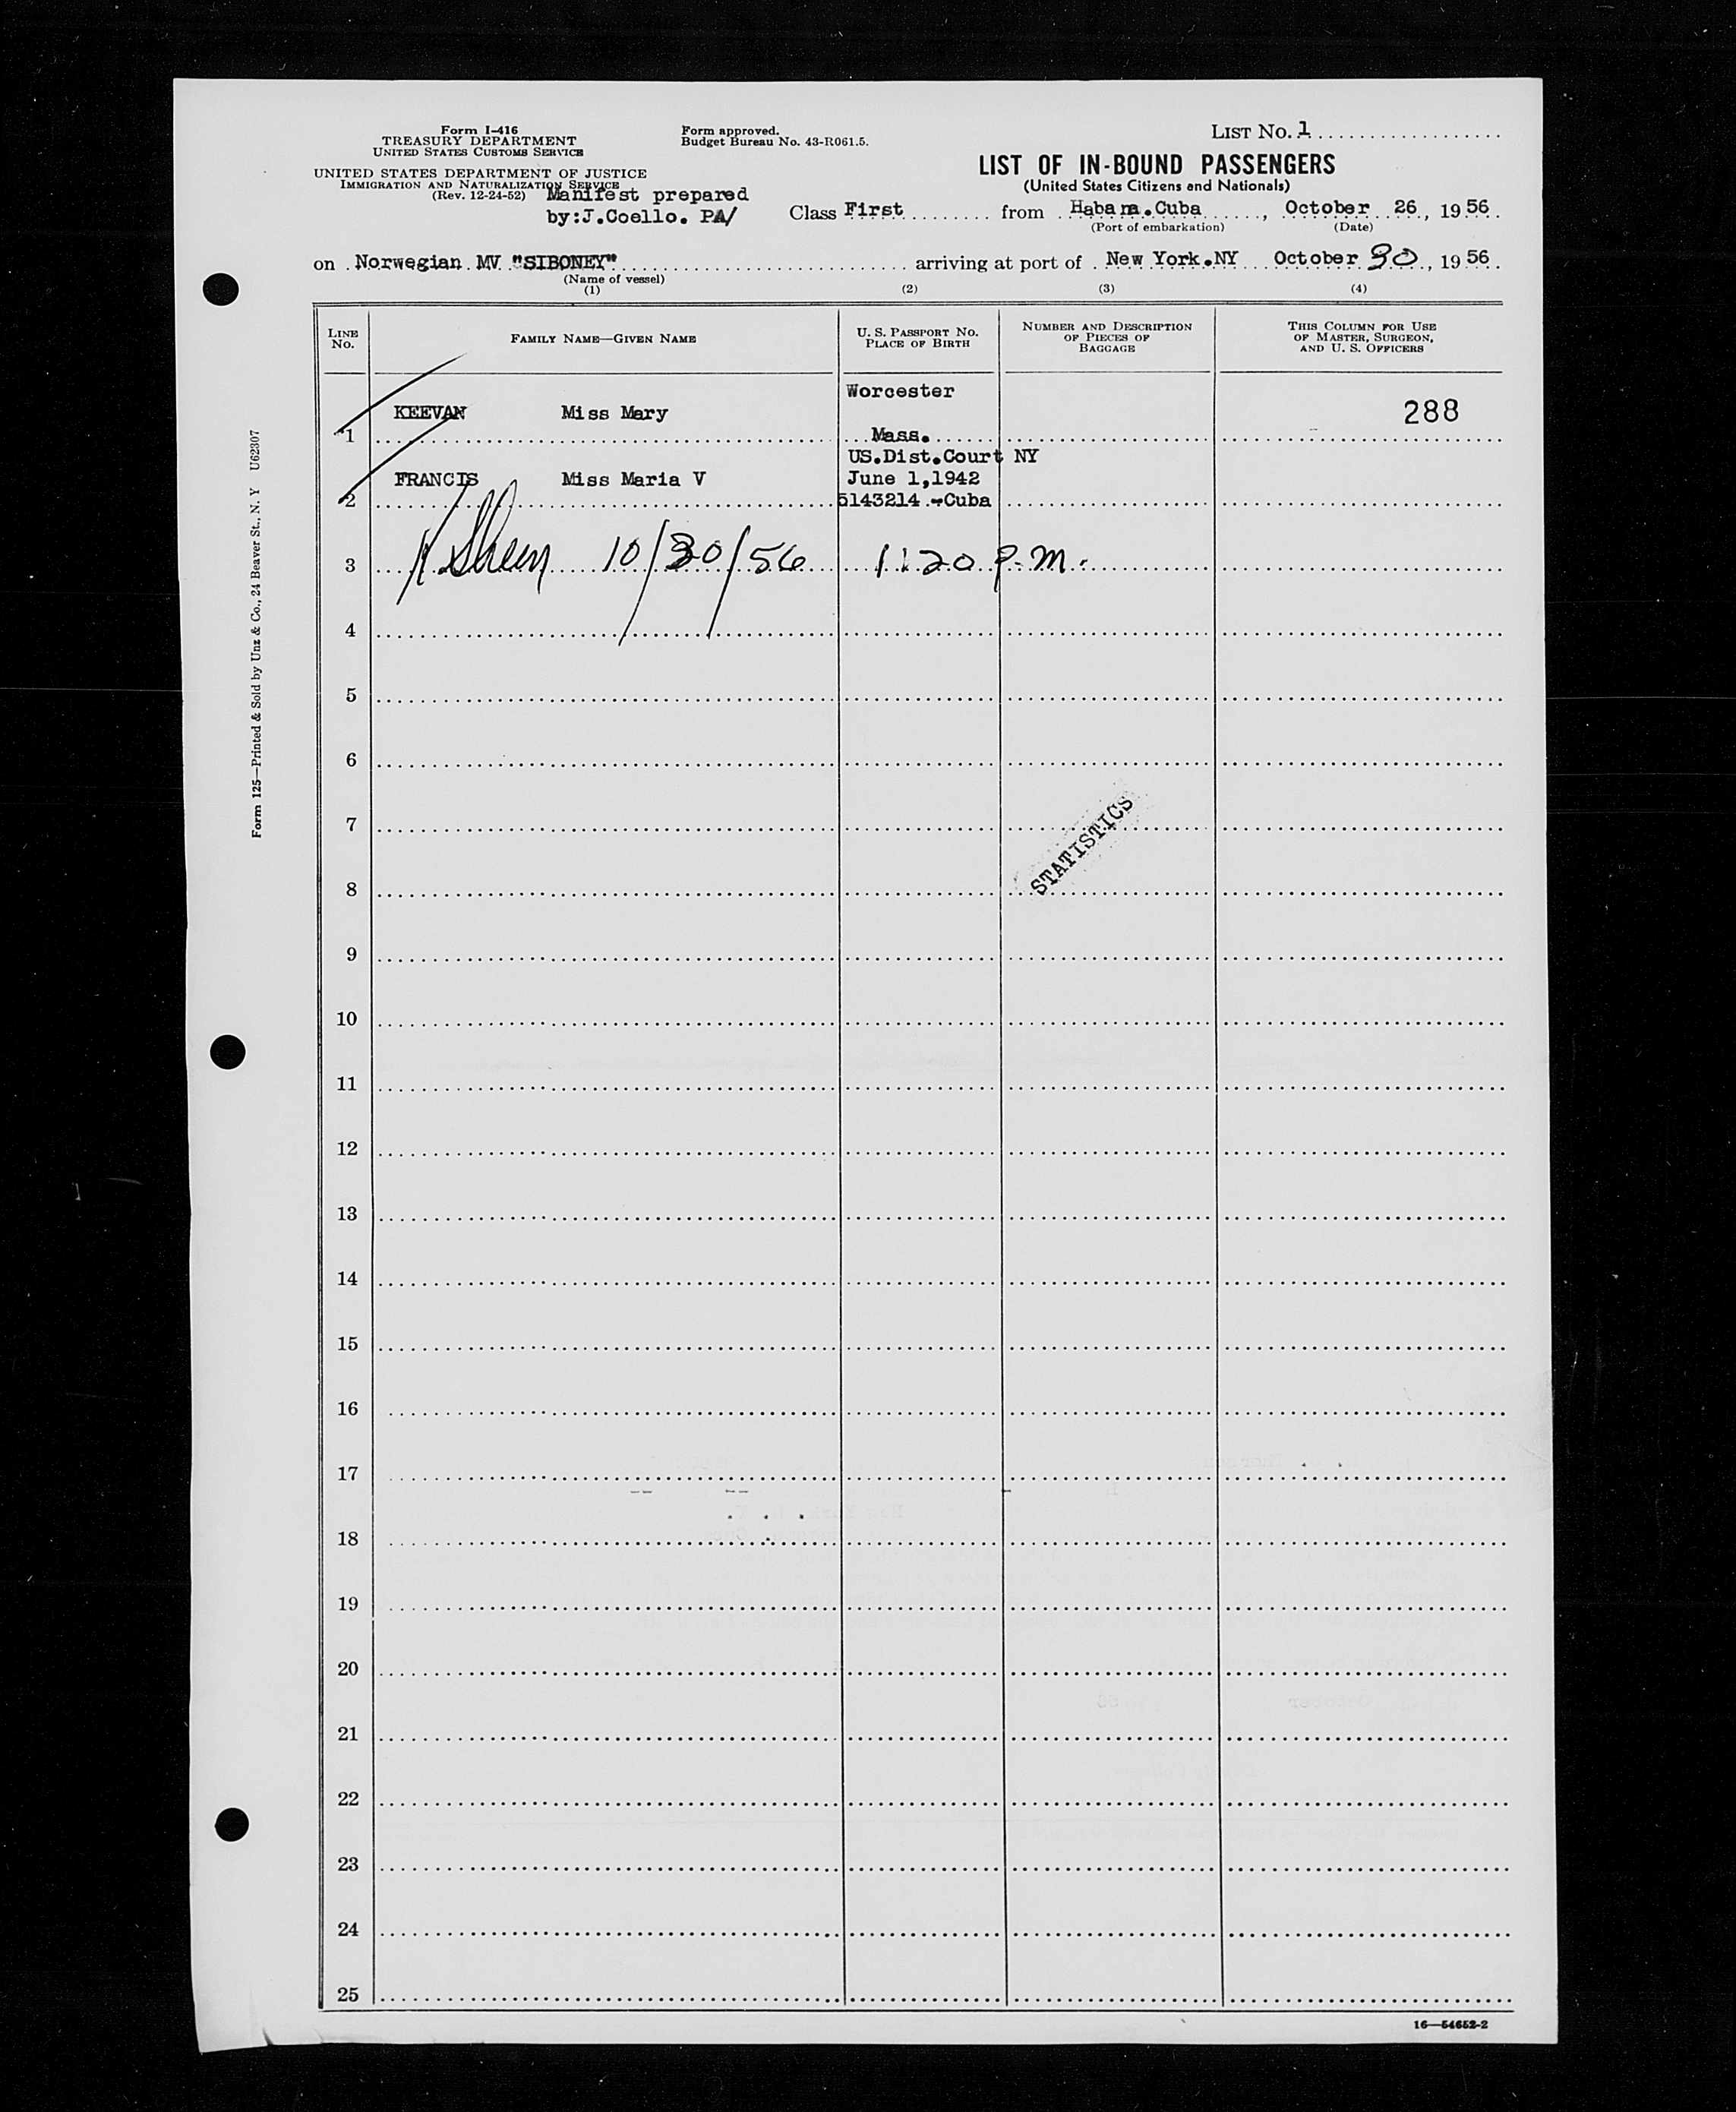 Form I-416
TREASURY DEPARTMENT
UNITED STATES CUSTOMS SERVICE
UNITED STATES DEPARTMENT OF JUSTICE
IMMIGRATION AND NATURALIZATION SERVICE
(Rev. 12-24-52)
Manifest prepared
by:J.Coello. PA/
Form approved.
Budget Bureau No. 43-R061.5.
LIST No. 1
LIST OF IN-BOUND PASSENGERS
(United States Citizens and Nationals)
Class First from Habana.Cuba, October 26, 1956.
(Port of embarkation) (Date)
on Norwegian MV "SIBONEY" arriving at port of New York.NY October 30, 1956.
(Name of vessel)
(1) (2) (3) (4)
LINE No.
FAMILY NAME—GIVEN NAME
U. S. PASSPORT No.
PLACE OF BIRTH
NUMBER AND DESCRIPTION
OF PIECES OF
BAGGAGE
THIS COLUMN FOR USE
OF MASTER, SURGEON,
AND U. S. OFFICERS
Worcester
1 KEEVAN Miss Mary 288
Mass.
US.Dist.Court NY
2 FRANCIS Miss Maria V June 1,1942
5143214 -Cuba
3 10/30/56 1:20 P.M.
4
5
6
7
STATISTICS
8
9
10
11
12
13
14
15
16
17
18
19
20
21
22
23
24
25
16—54652-2
Form 125—Printed & Sold by Unz & Co., 24 Beaver St., N. Y U62307